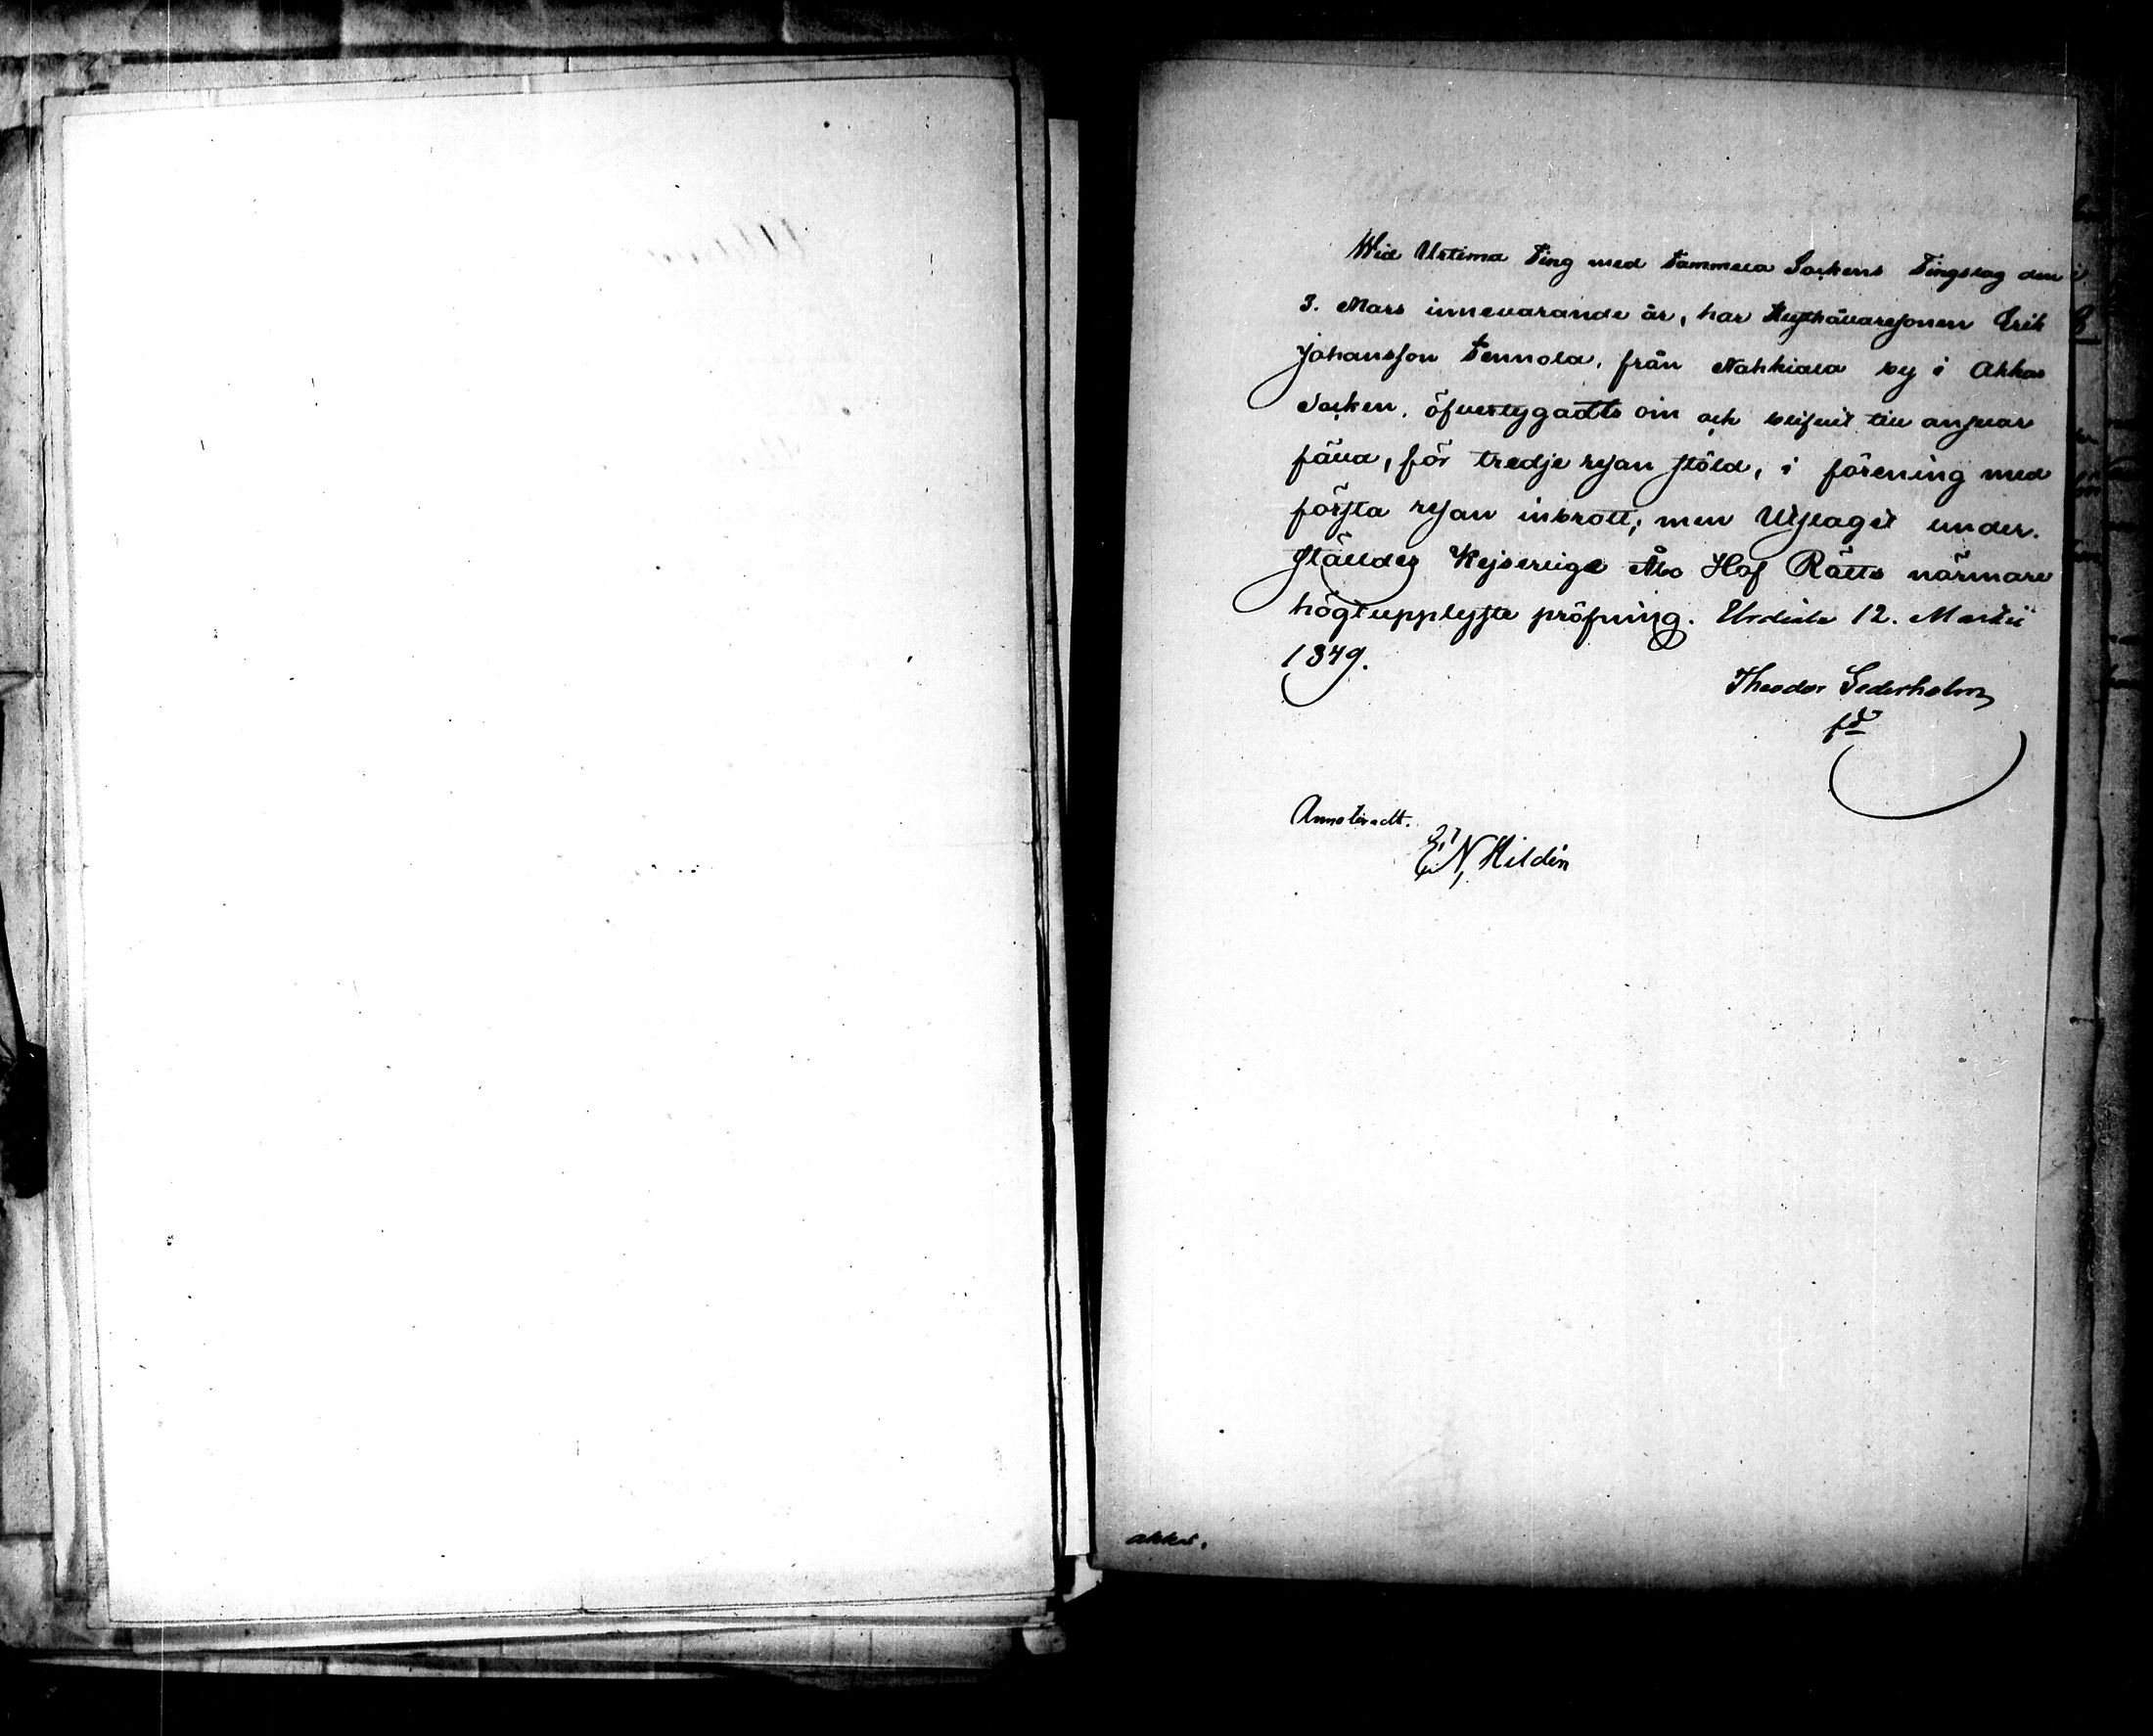 Wid Urtima Ting med Tammela Sockens Tingslag den
3. Mars innevarande år, har Rusthållaresonen Erik
Johansson Tennola, från Nahkiala by i Akkas
Socken, öfvertygadts om och blifvit till answar
fälld, för tredje resan stöld, i förening med
första resan inbrott; men Utslaget under-
ställdes Kejserlige Åbo Hof Rätts närmare
högtupplyste pröfning. Urdiala 12. Martii
1849.
Theodor Sederholm
Annoteradt.
E, N, Hildén